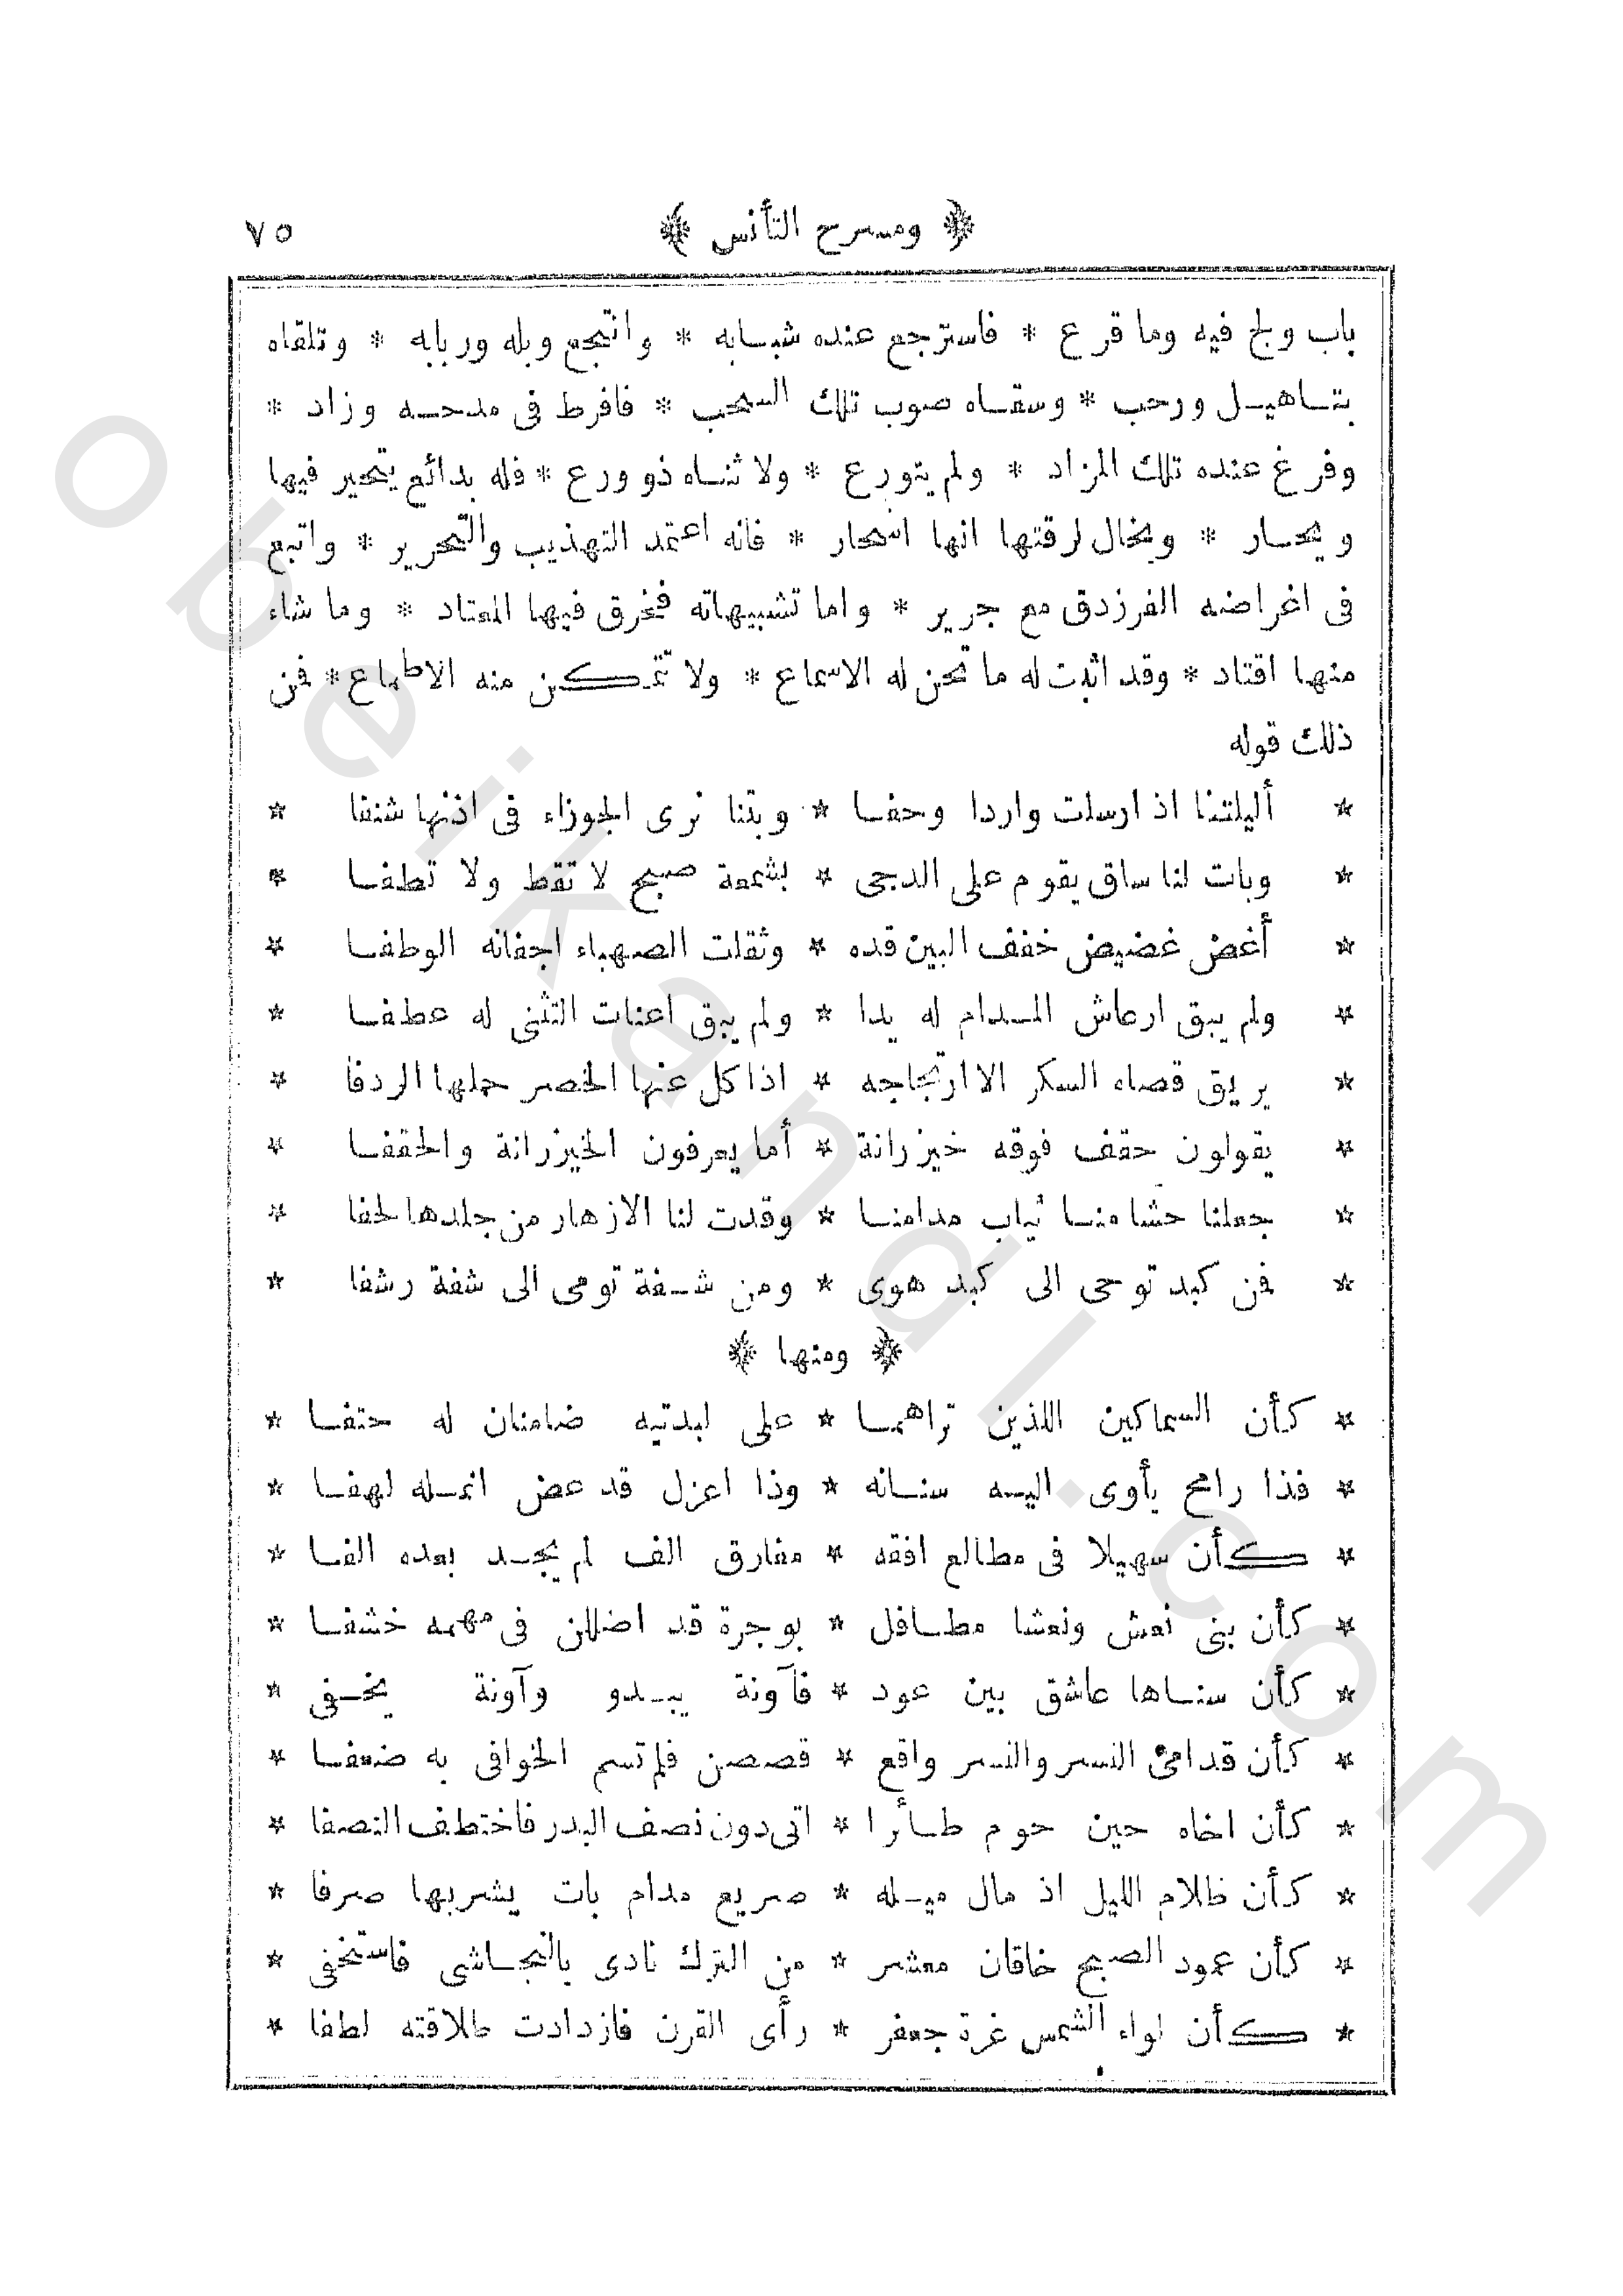 ﴿ ومسرح التأنس ﴾ ٧٥
باب ولج فيه وما قرع * فاسترجع عنده شبابه * وانتجع وبله وربابه * وتلقاه
بتاهيل ورحب * وسقاه صوب تلك السحب * فافرط فى مدحه وزاد *
وفرغ عنده تلك المزاد * ولم يتورع * ولا ثناه ذو ورع * فله بدائع يتحير فيها
ويحار * ويخال لرقتها انها اسحار * فانه اعتمد التهذيب والتحرير * واتبع
فى اغراضه الفرزدق مع جرير * واما تشبيهاته فخرق فيها المعتاد * وما شاء
منها اقتاد * وقد اثبت له ما تحن له الاسماع * ولا تتمكن منه الاطماع * فمن
ذلك قوله
* أليلتنا اذ ارسلت واردا وحفا * وبتنا نرى الجوزاء فى اذنها شنفا *
* وبات لنا ساق يقوم على الدجى * بشمعة صبح لا تقط ولا تطفا *
* أغض غضيض خفف البين قده * وثقلت الصهباء اجفانه الوطفا *
* ولم يبق ارعاش المدام له يدا * ولم يبق اعنات التثنى له عطفا *
* يريق قصاه السكر الا ارتجاجه * اذا كل عنها الخصر حملها الردفا *
* يقولون حقف فوقه خيزرانة * أما يعرفون الخيزرانة والحقفا *
* جعلنا حشا منا ثياب مدامنا * وقدت لنا الازهار من جلدها لحفا *
* فمن كبد توحى الى كبد هوى * ومن شفة تومى الى شفة رشفا *
﴿ ومنها ﴾
* كأن السماكين اللذين تراهما * على لبدتيه ضامنان له حتفا *
* فذا رامح يأوى اليه سنانه * وذا اعزل قد عض انمله لهفا *
* كأن سهيلا فى مطالع افقه * مفارق الف لم يجد بعده الفا *
* كأن بنى نعش ونعشا مطافل * بوجرة قد اضللن فى مهمه خشفا *
* كأن سناها عاشق بين عود * فآونة يبدو وآونة يخفى *
* كأن قدامى النسر والنسر واقع * قصصن فلم تسم الخوافى به ضعفا *
* كأن اخاه حين حوم طائرا * اتى دون نصف البدر فاختطف النصفا *
* كأن ظلام الليل اذ مال ميله * صريع مدام بات يشربها صرفا *
* كأن عمود الصبح خاقان معشر * من الترك نادى بالنجاشى فاستخفى *
* كأن لواء الشمس غرة جعفر * رأى القرن فازدادت طلاقته لطفا *
obeikandl.com